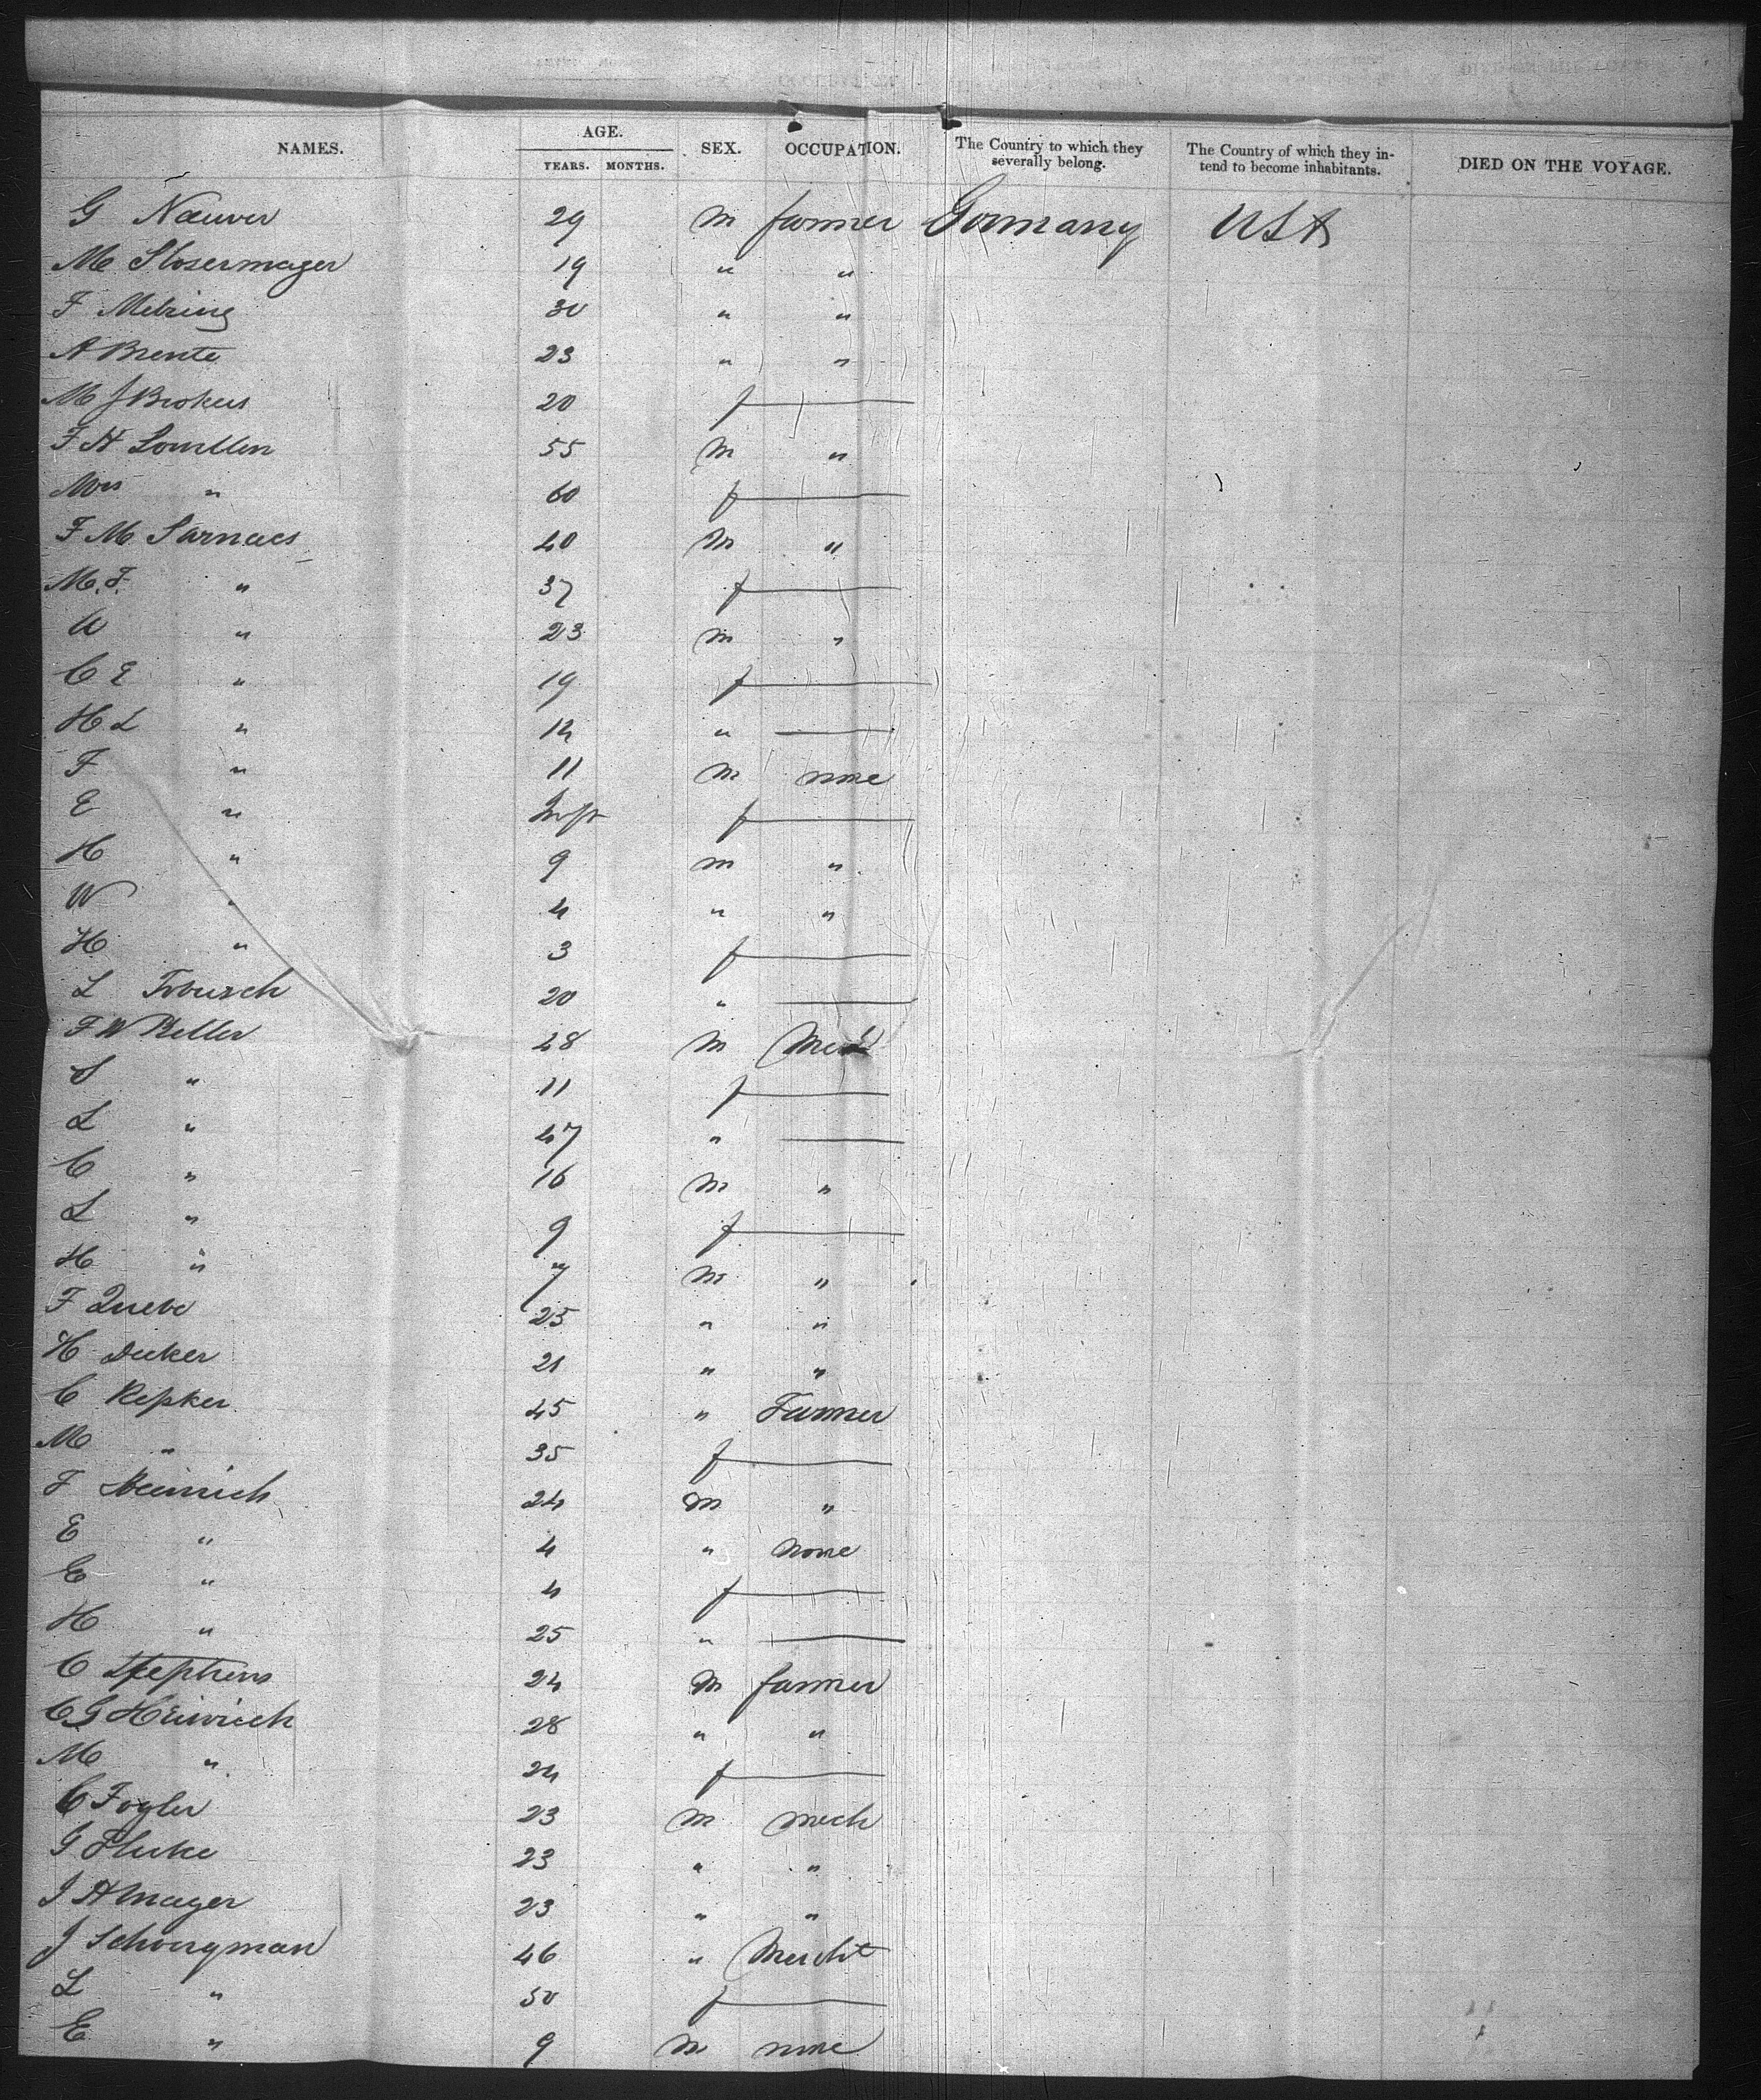 NAMES. AGE. YEARS. MONTHS. SEX. OCCUPATION. The Country to which they severally belong. The Country of which they intend to become inhabitants. DIED ON THE VOYAGE.
G Nauver 29 m farmer Germany USA
M Slosermager 19 " "
F Mehring 30 " "
A Brente 23 " "
M J Brokus 20 f —
F H 55 m "
Mrs " 60 f —
F M Sarnaes 40 m "
M. F. " 37 f —
W " 23 m "
C E " 19 f —
H L " 12 " —
F " 11 m none
E " Inft f —
H " 9 m "
W " 4 " "
H " 3 f —
L Trousch 20 " —
F W Beller 48 m
S " 11 f —
L " 47 " —
C " 16 m "
L " 9 f —
H " 7 m "
F Quebe 25 " "
H Decker 21 " "
C Repker 45 " Farmer
M " 35 f —
F Heinrich 24 m "
E " 4 " none
E " 4 f —
H " 25 " —
C Stephens 24 m farmer
C G Heinrich 28 " "
M " 24 f —
C Fogler 23 m mech
G Fluke 23 " "
J H Mayer 23 " "
J Schoengman 46 " Mercht
L " 50 f —
E " 9 m none